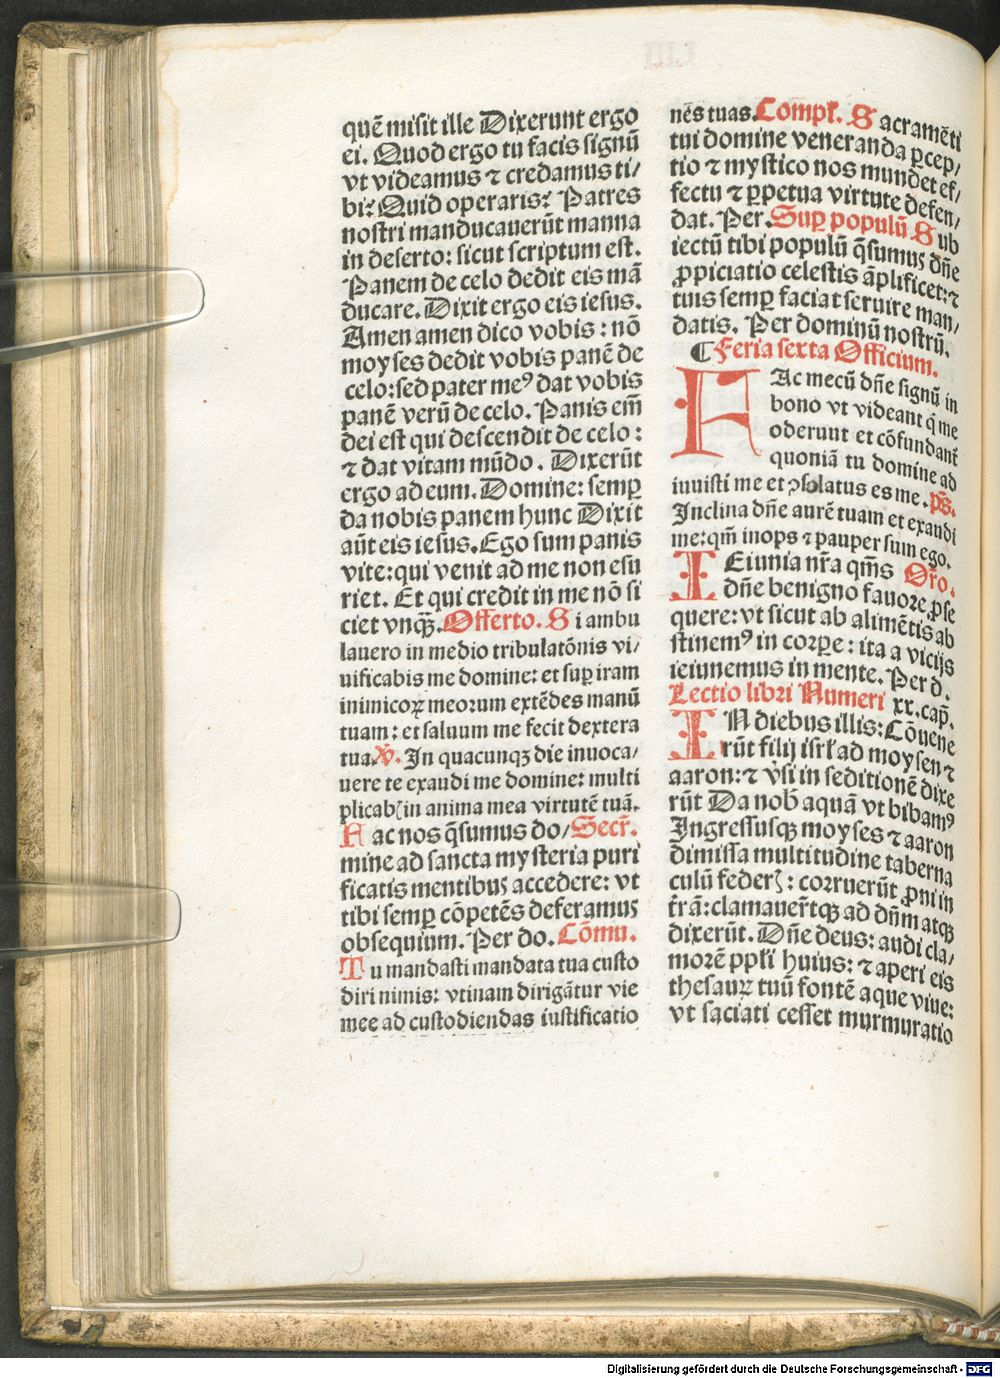 quē misit ille Dixerunt ergo
ei. Quod ergo tu facis signū
vt videamus ⁊ credamus ti/
bi: Quid operaris: Patres
nostri manducauerūt manna
in deserto: sicut scriptum est.
Panem de celo dedit eis mā
ducare. Dixit ergo eis iesus.
Amen amen dico vobis: nō
moyses dedit vobis panē de
celo: sed pater meꝰ dat vobis
panē verū de celo. Panis em̄
dei est qui descendit de celo:
⁊ dat vitam mūdo. Dixerūt
ergo ad eum. Domine: semꝑ
da nobis panem hunc Dixit
aūt eis iesus. Ego sum panis
vite: qui venit ad me non esu
riet. Et qui credit in me nō si
ciet vnqꝫ. Offerto. Si ambu
lauero in medio tribulatōnis vi/
uificabis me domine: et suꝑ iram
inimicoꝝ meorum extēdes manū
tuam: et saluum me fecit dextera
tua. v̄. In quacunqꝫ die inuoca/
uere te exaudi me domine: multi
plicabꝭ in anima mea virtutē tuā.
Fac nos q̄sumus do/ Secr̄.
mine ad sancta mysteria puri
ficatis mentibus accedere: vt
tibi semꝑ cōpetēs deferamus
obsequium. Per do. Cōmu.
Tu mandasti mandata tua custo
diri nimis: vtinam dirigātur vie
mee ad custodiendas iustificatio
nēs tuas. Compł. Sacramēti
tui domine veneranda ꝑcep/
tio ⁊ mystico nos mundet ef/
fectu ⁊ ꝑpetua virtute defen/
dat. Per. Suꝑ populū. Sub
iectū tibi populū q̄sumus dn̄e
ꝓpiciatio celestis āplificet: ⁊
tuis semꝑ faciat seruire man/
datis. Per dominū nostrū.
⸿ Feria sexta Officium.
FAc mecū dn̄e signū in
bono vt videant q̄ me
oderunt et cōfundanť
quoniā tu domine ad
iuuisti me et ꝯsolatus es me. ps̄.
Inclina dn̄e aurē tuam et exaudi
me: qm̄ inops ⁊ pauper sum ego.
IEiunia nr̄a qm̄s Or̄o.
dn̄e benigno fauore ꝓse
quere: vt sicut ab alimētis ab
stinemꝰ in corꝑe: ita a vicijs
ieiunemus in mente. Per d.
Lectio libri Numeri xx. cap̄.
IN diebus illis: Cōuene
rūt filij isrł ad moysen ⁊
aaron: ⁊ v̓si in seditionē dixe
rūt Da nob̄ aquā vt bibamꝰ
Ingressusqꝫ moyses ⁊ aaron
dimissa multitudine taberna
culū federꝭ: corruerūt ꝓni in
tr̄ā: clamauer̄tqꝫ ad dn̄m atqꝫ
dixerūt. Dn̄e deus: audi cla/
morē ppłi huius: ⁊ aperi eis
thesaurꝝ tuū fontē aque viue:
vt saciati cesset murmuratio
Digitalisierung gefördert durch die Deutsche Forschungsgemeinschaft - DFG